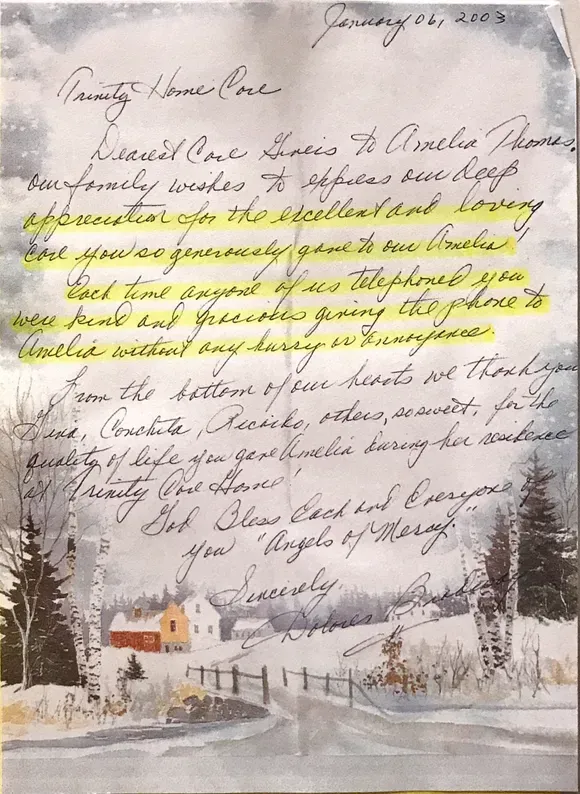 January 06, 2003
Trinity Home Care
Dearest Care Givers to Amelia Thomas,
our family wishes to express our deep
appreciation for the excellent and loving
care you so generously gave to our Amelia!
Each time anyone of us telephoned you
were kind and gracious giving the phone to
Amelia without any hurry or annoyance.
From the bottom of our hearts we thank you
Gina, Conchita, others, so sweet, for the
quality of life you gave Amelia during her residence
at Trinity Care Home!
God Bless Each and Everyone of
you "Angels of Mercy."
Sincerely
Dolores